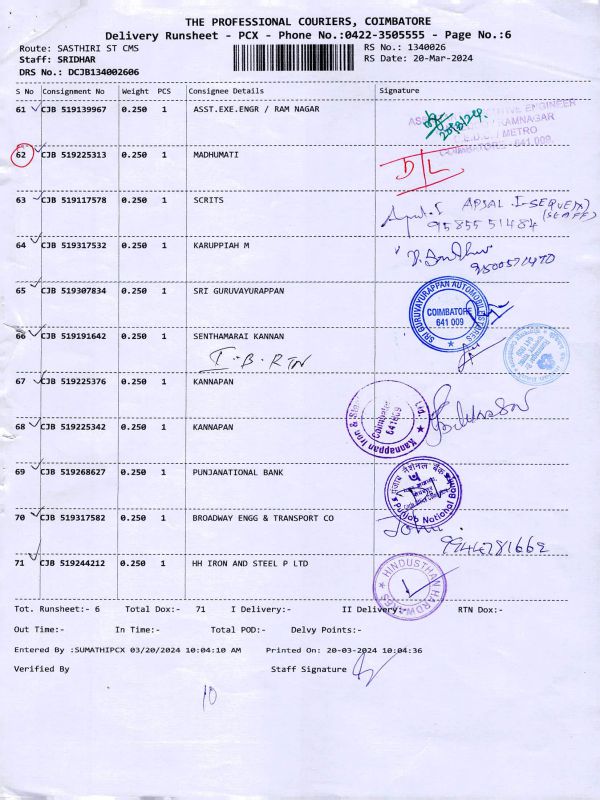 THE PROFESSIONAL COURIERS, COIMBATORE
Delivery Runsheet - PCX - Phone No.:0422-3505555 - Page No.:6
Route: SASTHIRI ST CMS RS No.: 1340026
Staff: SRIDHAR RS Date: 20-Mar-2024
DRS No.: DCJB134002606
S No Consignment No Weight PCS Consignee Details Signature
61 CJB 519139967 0.250 1 ASST.EXE.ENGR / RAM NAGAR
62 CJB 519225313 0.250 1 MADHUMATI D/L
63 CJB 519117578 0.250 1 SCRITS
95855 51484
64 CJB 519317532 0.250 1 KARUPPIAH M
9500571470
65 CJB 519307834 0.250 1 SRI GURUVAYURAPPAN
SRI GURUVAYURAPPAN AUTOMOBILE STORES
COIMBATORE
641 009
66 CJB 519191642 0.250 1 SENTHAMARAI KANNAN
I.B.RTN
67 CJB 519225376 0.250 1 KANNAPAN
Kannappan Iron &
Coimbatore
68 CJB 519225342 0.250 1 KANNAPAN
69 CJB 519268627 0.250 1 PUNJANATIONAL BANK
पंजाब नैशनल बैंक
Punjab National Bank
70 CJB 519317582 0.250 1 BROADWAY ENGG & TRANSPORT CO
9944781662
71 CJB 519244212 0.250 1 HH IRON AND STEEL P LTD
HINDUSTHAN HARDWARES
Tot. Runsheet:- 6 Total Dox:- 71 I Delivery:- II Delivery:- RTN Dox:-
Out Time:- In Time:- Total POD:- Delvy Points:-
Entered By :SUMATHIPCX 03/20/2024 10:04:10 AM Printed On: 20-03-2024 10:04:36
Verified By Staff Signature
10